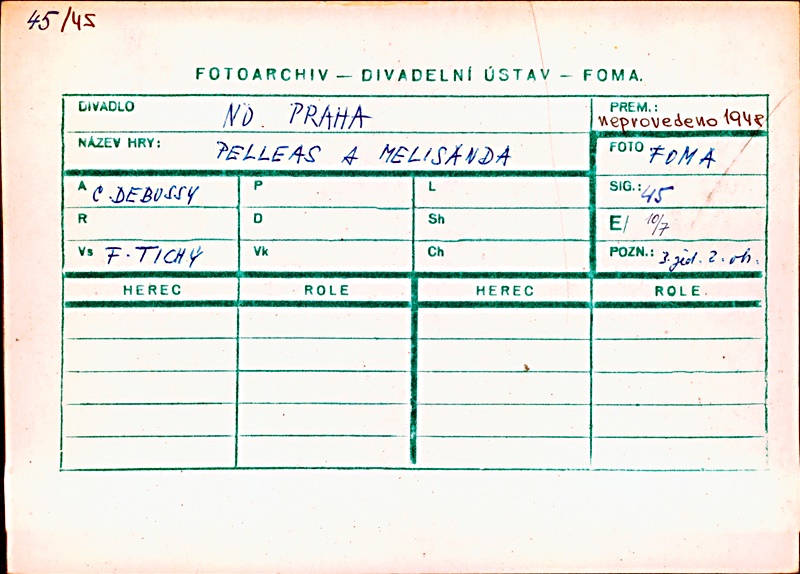 45/45
FOTOARCHIV — DIVADELNÍ ÚSTAV — FOMA.
DIVADLO ND PRAHA
PREM.: neprovedeno 1948
NÁZEV HRY: PELLEAS A MELISANDA
FOTO FOMA
A C. DEBUSSY P L SIG.: 45
R D Sh E/ 10/7
Vs F. TICHÝ Vk Ch POZN.: 3. jed. 2. ob.
HEREC ROLE HEREC ROLE